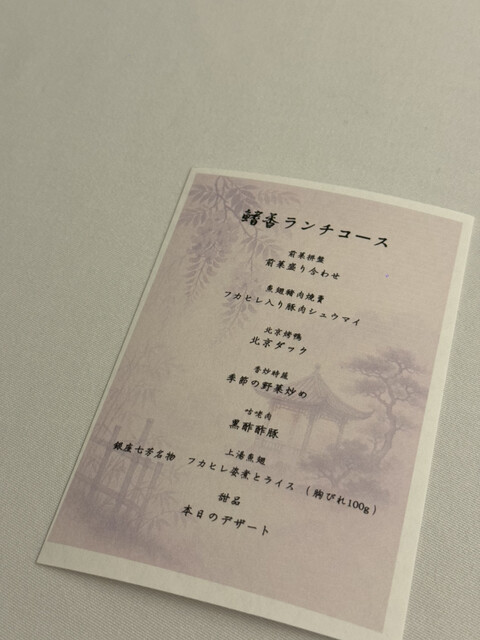 鰭善ランチコース
前菜拼盤
前菜盛り合わせ
魚翅豬肉燒賣
フカヒレ入り豚肉シュウマイ
北京烤鴨
北京ダック
香炒時蔬
季節の野菜炒め
咕咾肉
黒酢酢豚
上湯魚翅
銀座七芳名物 フカヒレ姿煮とライス (胸びれ100g)
甜品
本日のデザート